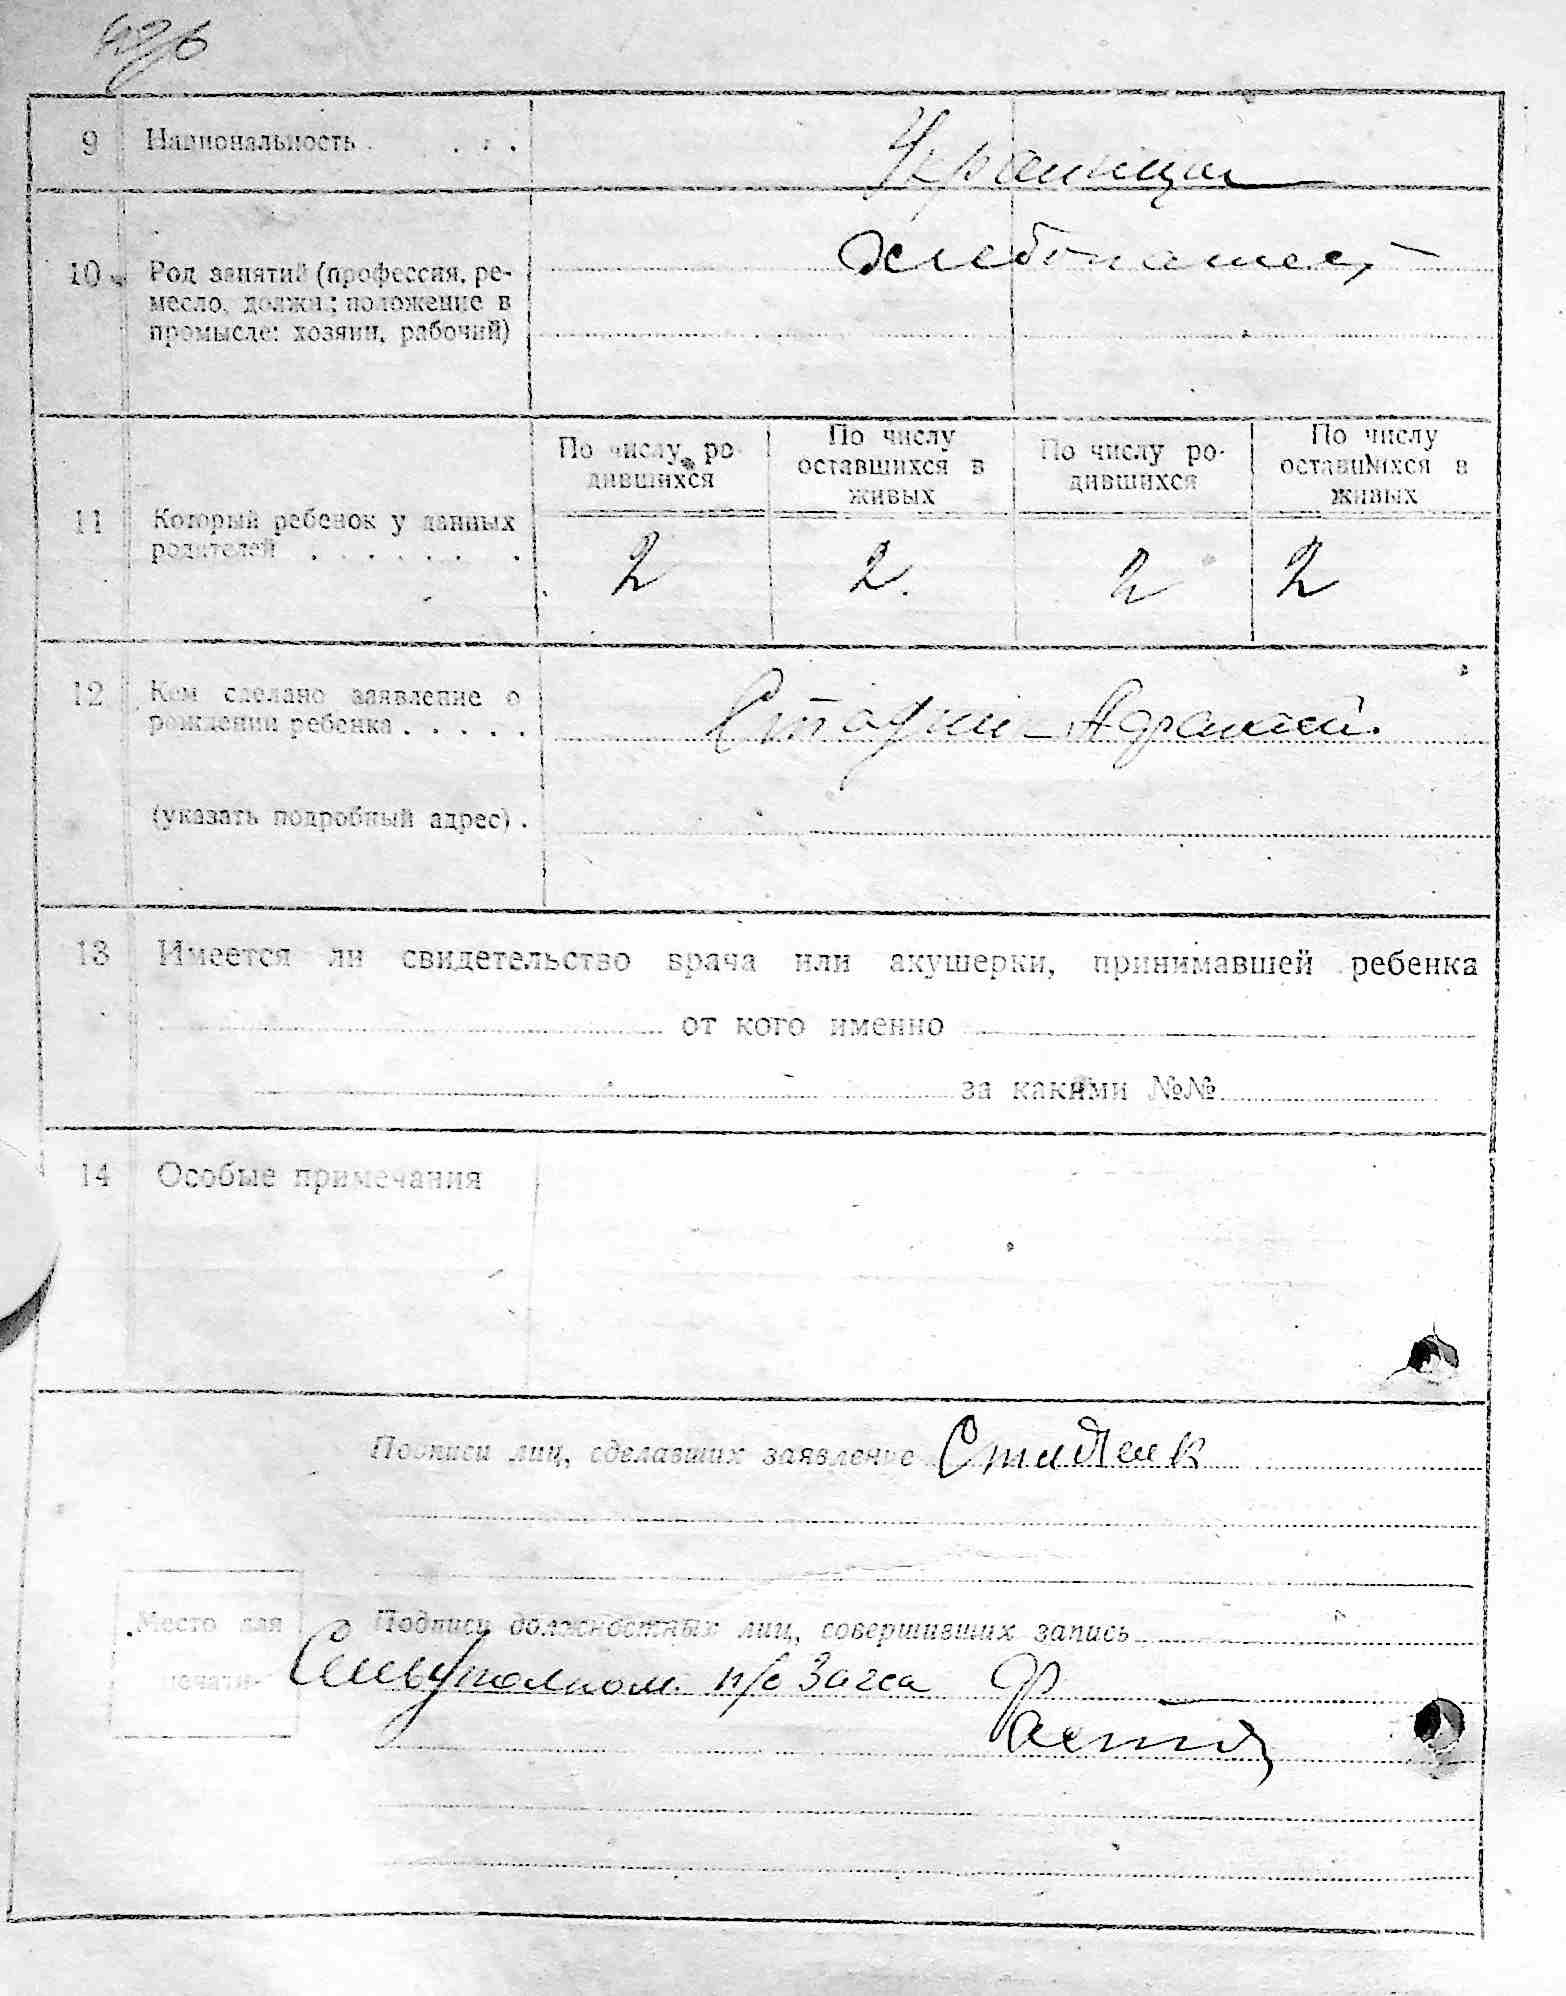 9 Национальность . . . .
Украинцы
10 Род занятий (профессия, ре-
месло, должн.; положение в
промысле: хозяин, рабочий)
хлебопашец
11 Который ребенок у данных
родителей . . . . . . .
По числу ро-
дившихся
По числу
оставшихся в
живых
По числу ро-
дившихся
По числу
оставшихся в
живых
2 2. 2 2
12 Кем сделано заявление о
рождении ребенка . . . . .
(указать подробный адрес) .
13 Имеется ли свидетельство врача или акушерки, принимавшей ребенка
от кого именно
за какими №№
14 Особые примечания
Подписи лиц, сделавших заявление
Место для
печати
Подписи должностных лиц, совершивших запись
п/с Загса